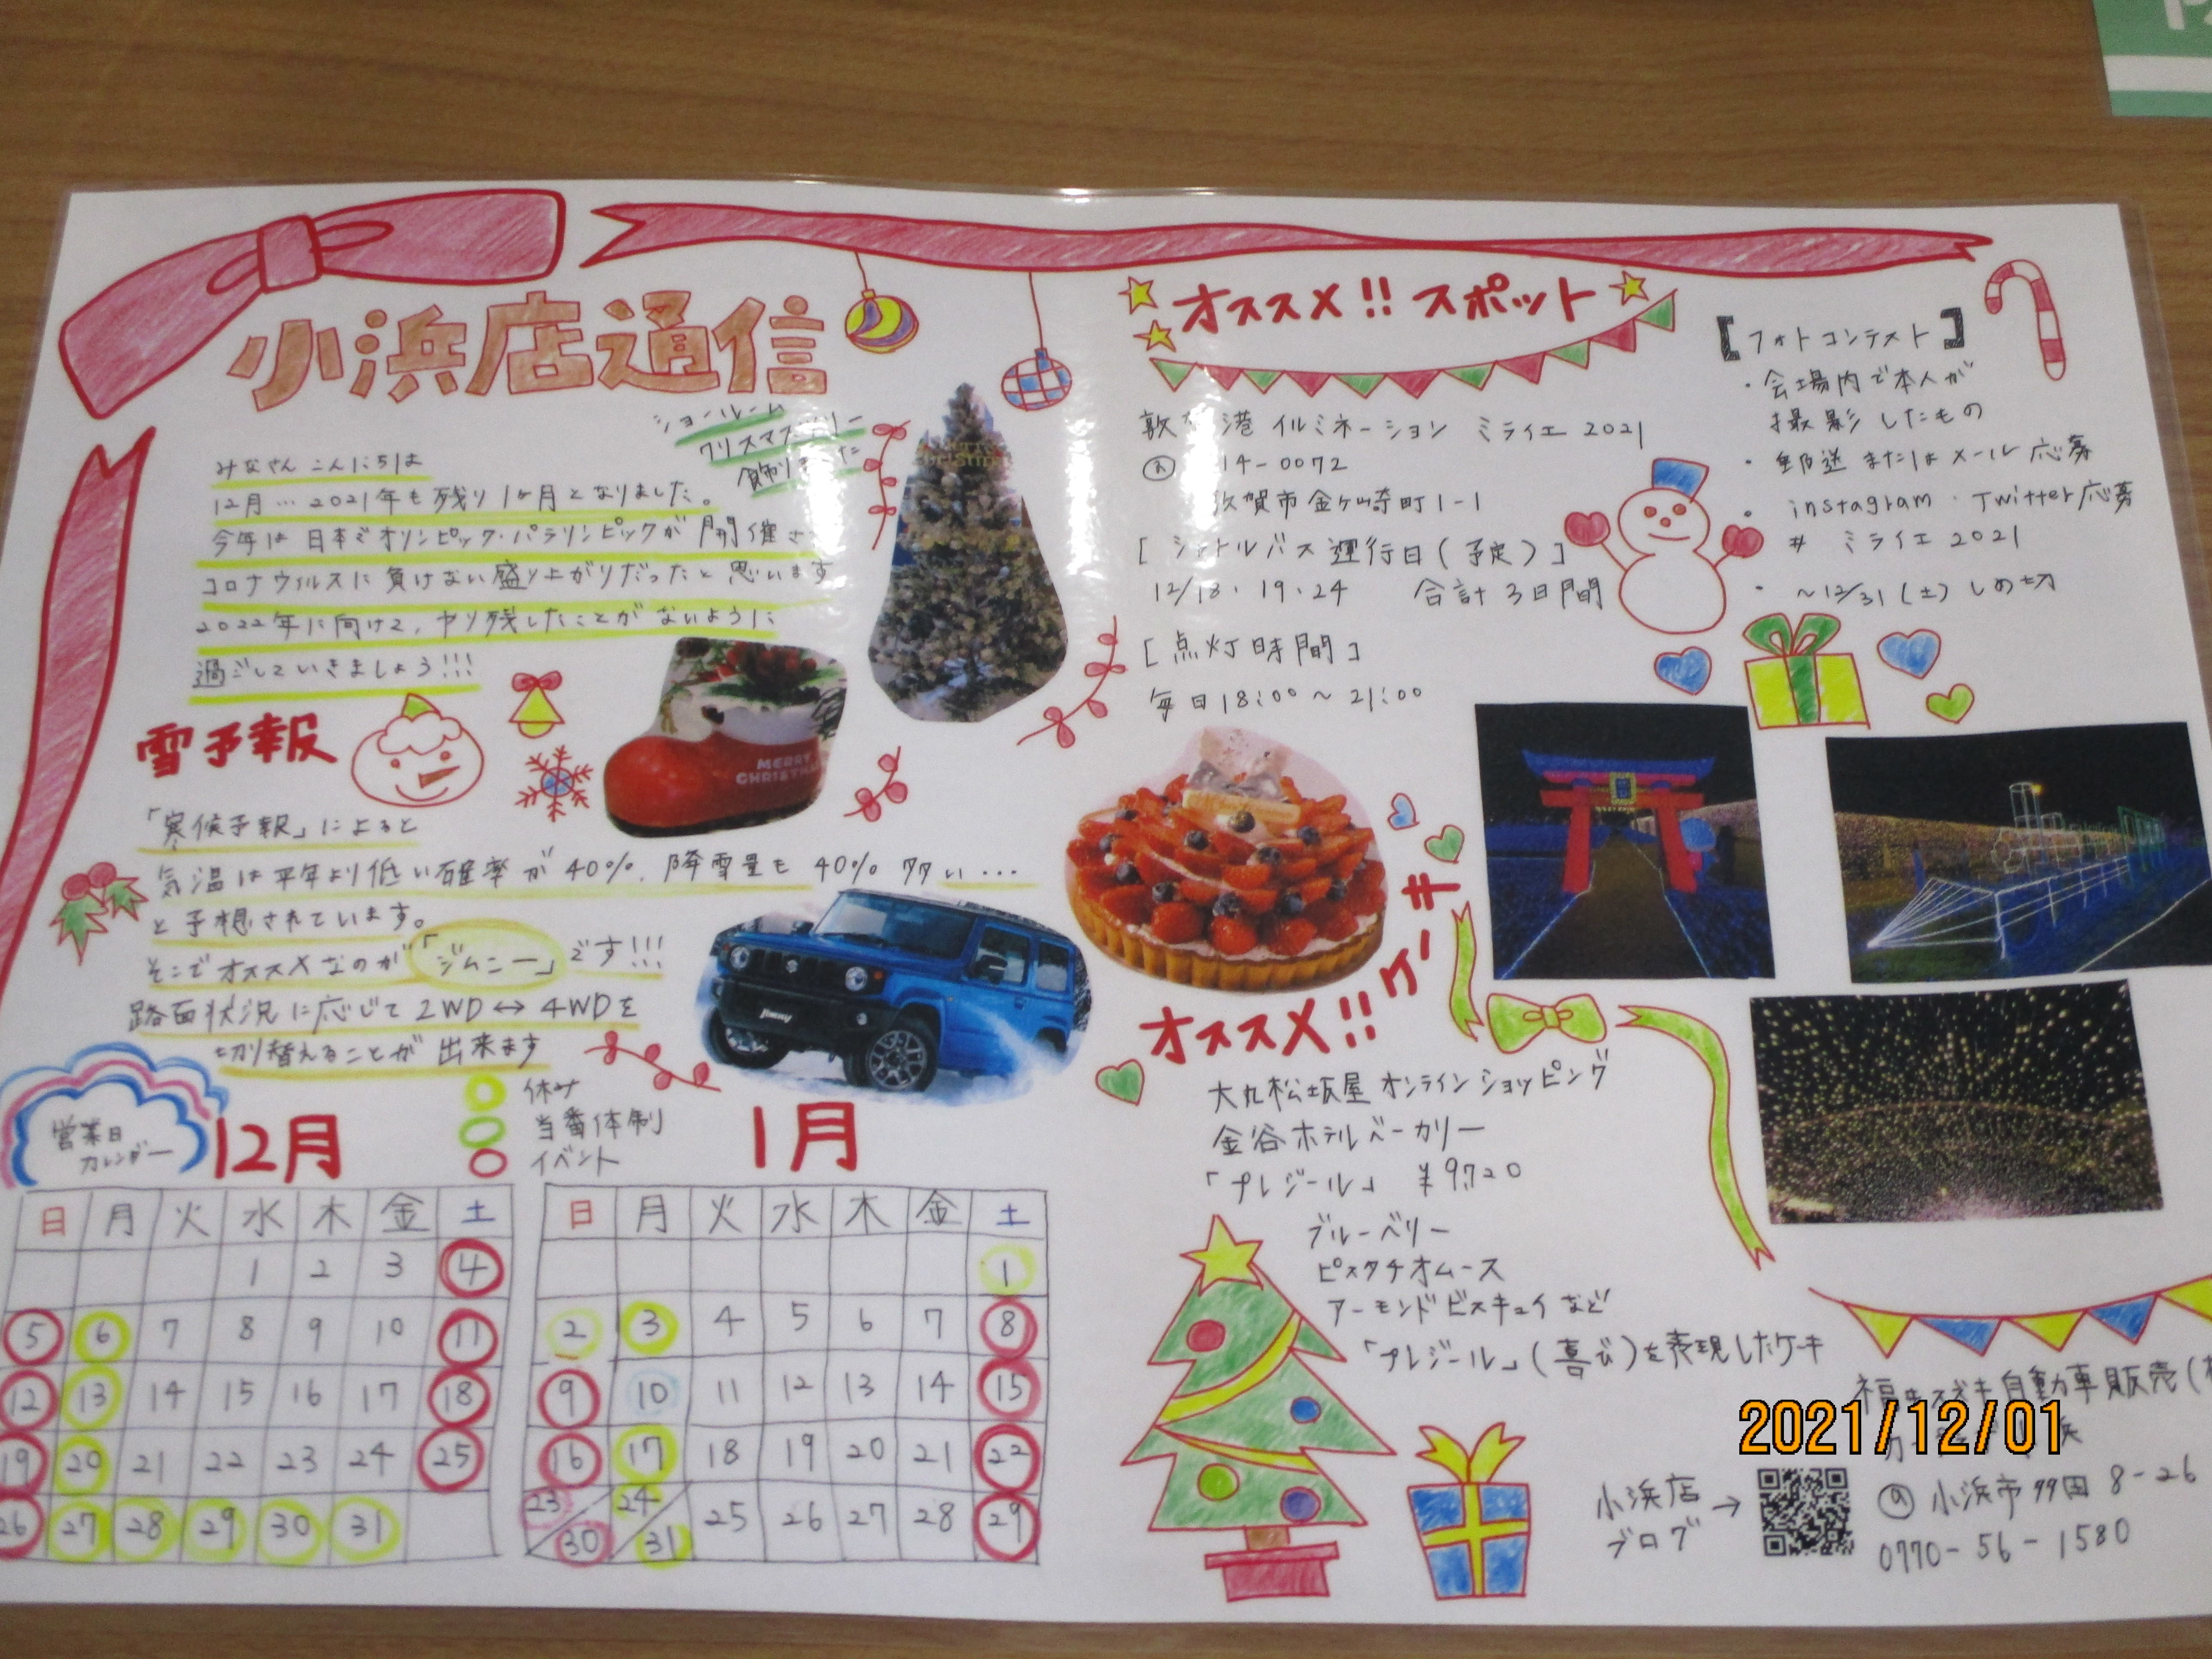 小浜店通信
ショールーム
クリスマスツリー
みなさん こんにちは
12月…2021年も残り1ヶ月となりました。
今年は日本でオリンピック・パラリンピックが開催さ
コロナウイルスに負けない盛り上がりだったと思います
2022年に向けて、ヤリ残したことがないように
過ごしていきましょう!!!
MERRY
CHRISTMA
雪予報
「寒候予報」によると
気温は平年より低い確率が40%、降雪量も40%多い…
と予想されています。
そこでオススメなのが「ジムニー」です!!!
路面状況に応じて2WD↔4WDを
切り替えることが出来ます
Jimny
営業日
カレンダー
12月
休み
当番体制
イベント
1月
日 月 火 水 木 金 土
1 2 3 4
5 6 7 8 9 10 11
12 13 14 15 16 17 18
19 20 21 22 23 24 25
26 27 28 29 30 31
日 月 火 水 木 金 土
1
2 3 4 5 6 7 8
9 10 11 12 13 14 15
16 17 18 19 20 21 22
23/30 24/31 25 26 27 28 29
オススメ!! スポット
敦 港 イルミネーション ミライエ 2021
14-0072
敦賀市金ヶ崎町1-1
[シャトルバス運行日(予定)]
12/18・19・24 合計3日間
[点灯時間]
毎日18:00〜21:00
【フォトコンテスト】
・会場内で本人が
撮影したもの
・郵送またはメール応募
・instagram・Twitter応募
# ミライエ2021
・〜12/31(土)しめ切
オススメ!! ケーキ
大丸松坂屋 オンラインショッピング
金谷ホテルベーカリー
「プレジール」 ¥9,720
ブルーベリー
ピスタチオムース
アーモンドビスキュイなど
「プレジール」(喜び)を表現したケーキ
福井スズキ自動車販売(
2021/12/01
小浜店→
ブログ
小浜市多田8-26
0770-56-1580